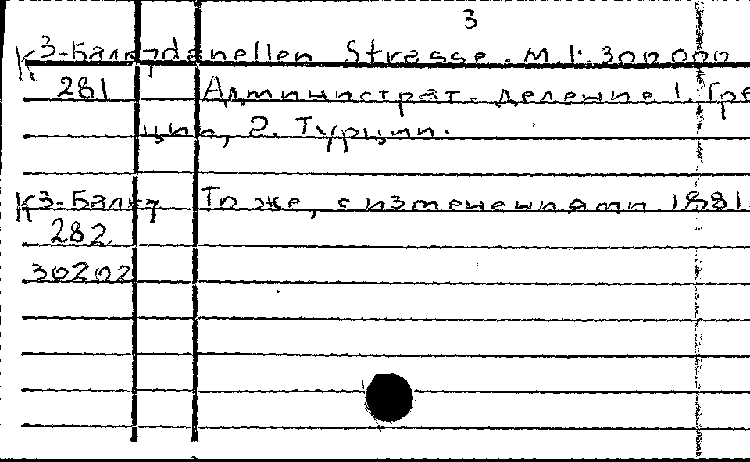 3
К3-Балк danellen Strasse. M 1:300.000
281 Администрат. деление 1. Гре
ции, 2. Турции.
К3-Балк То же, с изменениями 1881
282
30202